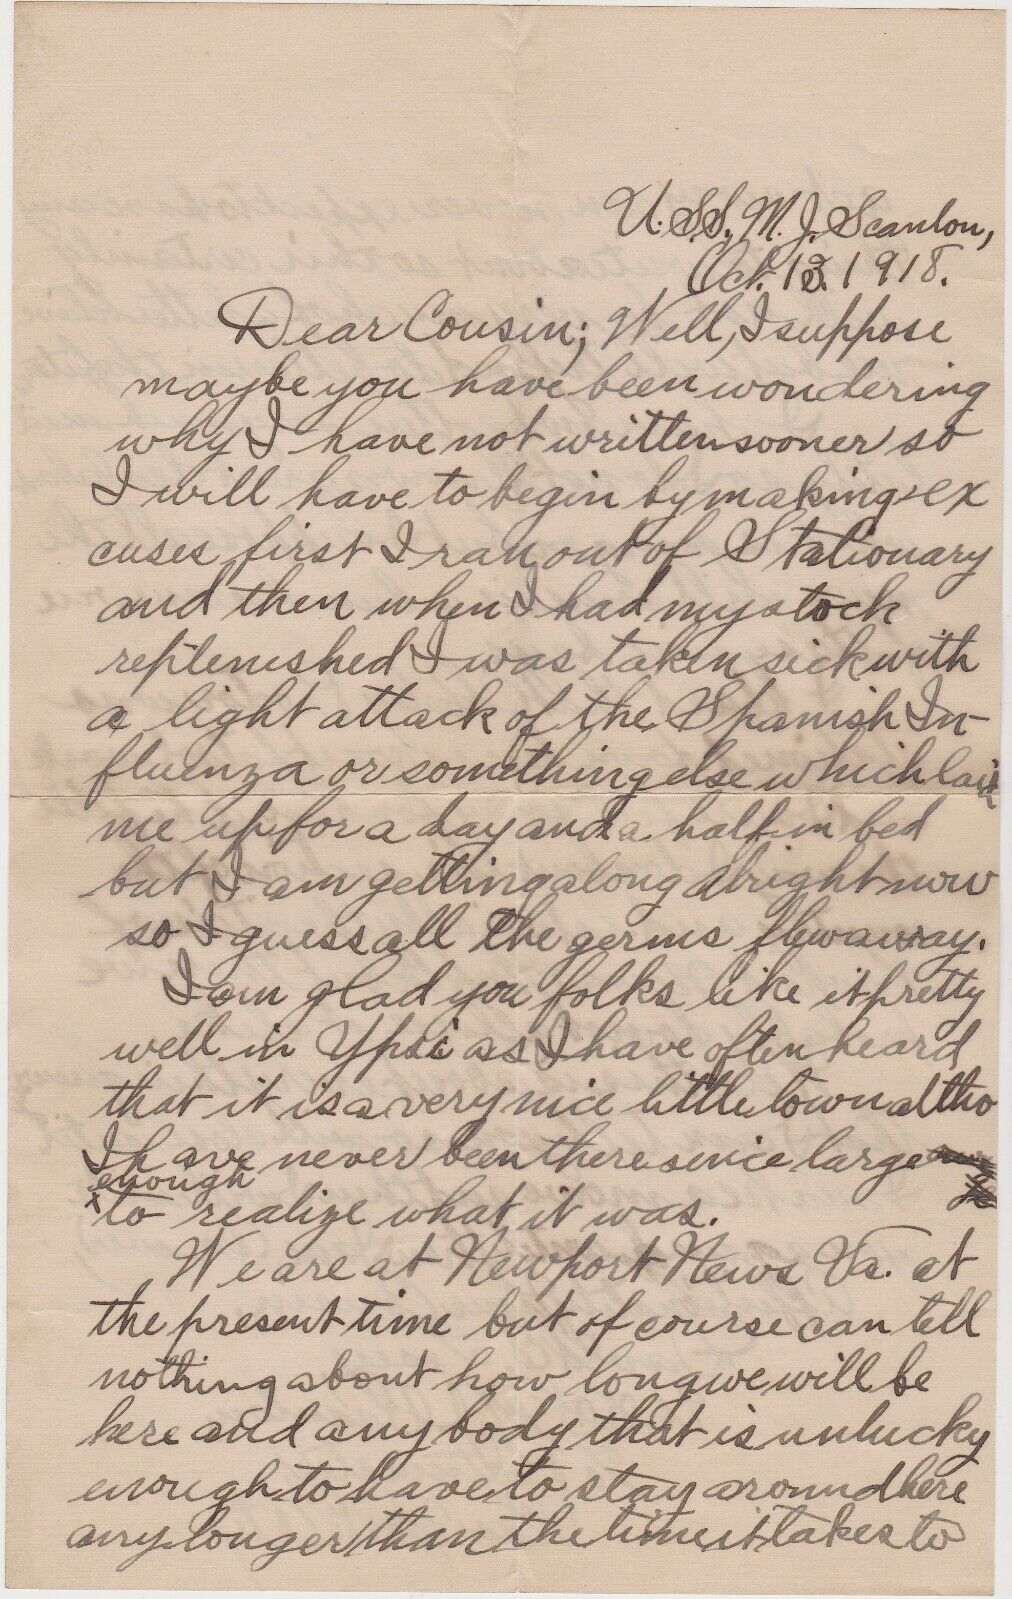 U.S.S. M. J. Scanlon,
Oct. 13. 1918.
Dear Cousin; Well, I suppose
maybe you have been wondering
why I have not written sooner so
I will have to begin by making ex
cuses first I ran out of Stationary
and then when I had my stock
replenished I was taken sick with
a light attack of the Spanish In-
fluenza or something else which laid
me up for a day and a half in bed
but I am getting along alright now
so I guess all the germs flew away.
I am glad you folks like it pretty
well in Ypsi as I have often heard
that it is a very nice little town altho
I have never been there since large
enough
x to realize what it was.
We are at Newport News Va. at
the present time but of course can tell
nothing about how long we will be
here and any body that is unlucky
enough to have to stay around here
any longer than the time it takes to